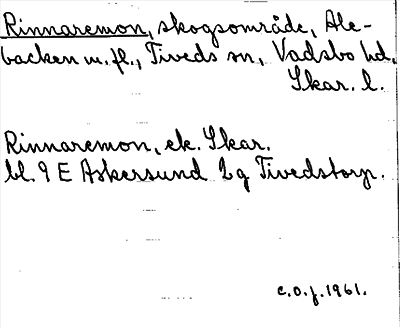 Rinnaremon, skogsområde, Ale-
backen m. fl., Tiveds sn, Vadsbo hd,
Skar. l.
Rinnaremon, ek. Skar.
bl. 9 E Askersund 2g Tivedstorp.
c.o.f. 1961.